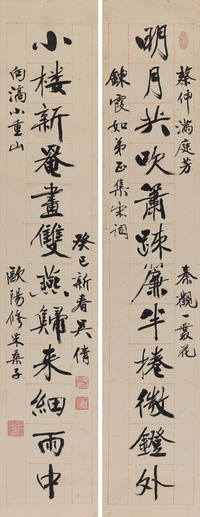 明月共吹簫疎簾半捲微鐙外
蔡伸滿庭芳
秦觀一叢花
鍊霞如弟正集宋詞
小樓新罨畫雙燕歸來細雨中
向滈小重山
歐陽修采桑子
癸巳新春吳倩